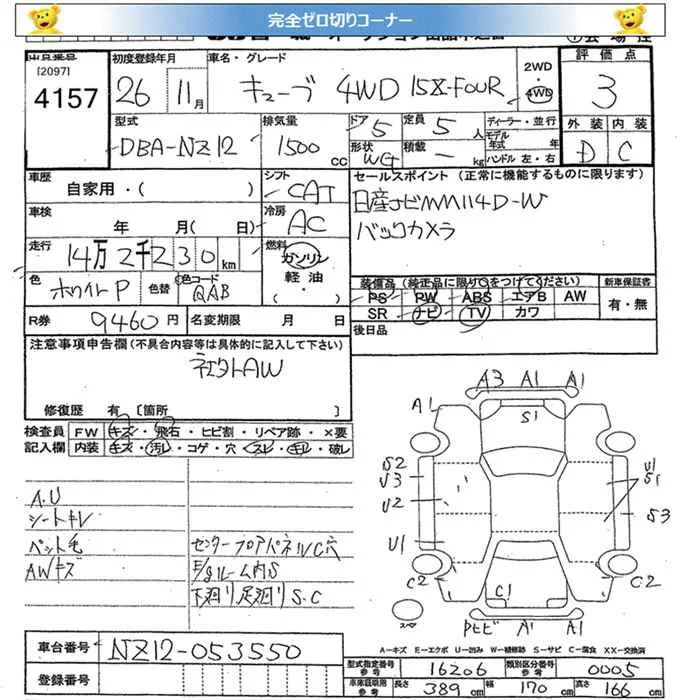 完全ゼロ切りコーナー
出品番号
[2097]
4157
初度登録年月
26 11月
車名・グレード
キューブ 4WD 15X-FOUR
2WD
・
4WD
評価点
3
外装 内装
D C
型式
DBA-NZ12
排気量
1500
CC
ドア 5
定員 5人
形状
積載 - kg
ディーラー・並行
モデル年式 年
ハンドル 左・右
車歴
自家用・( )
シフト
CAT
車検
年 月(日)
冷房
AC
走行
14万2千230km
燃料
ガソリン
軽油
色
ホワイトP
色替
色コード
QAB
R券 9460円
名変期限 月 日
セールスポイント(正常に機能するものに限ります)
日産ナビMM114D-W
バックカメラ
装備品(純正品に限り○をつけてください)
PS PW ABS エアB AW
SR ナビ TV カワ
新車保証書
有・無
後日品
注意事項申告欄(不具合内容等は具体的に記入して下さい)
社外AW
修復歴 有 [箇所 ]
検査員
記入欄
FW キズ・飛石・ヒビ割・リペア跡・×要
内装 キズ・汚レ・コゲ・穴・スレ・キレ・破レ
A.U
シートキレ
ペット毛
AWキズ
センターフロアパネルC穴
E/gルーム内S
下廻り足廻りS.C
A3 A1 A1
A1
S1
S2
U3
U2
U1
U1
S1
S3
C2
C1
C2
A1 A1
A-キズ E-エクボ U-凹み W-補修跡 S-サビ C-腐食 XX-交換済
車台番号
NZ12-053550
登録番号
型式指定番号
参考
16206
類別区分番号
参考
0005
車庫証取用
参考
長さ 389cm
幅 170cm
高さ 166cm